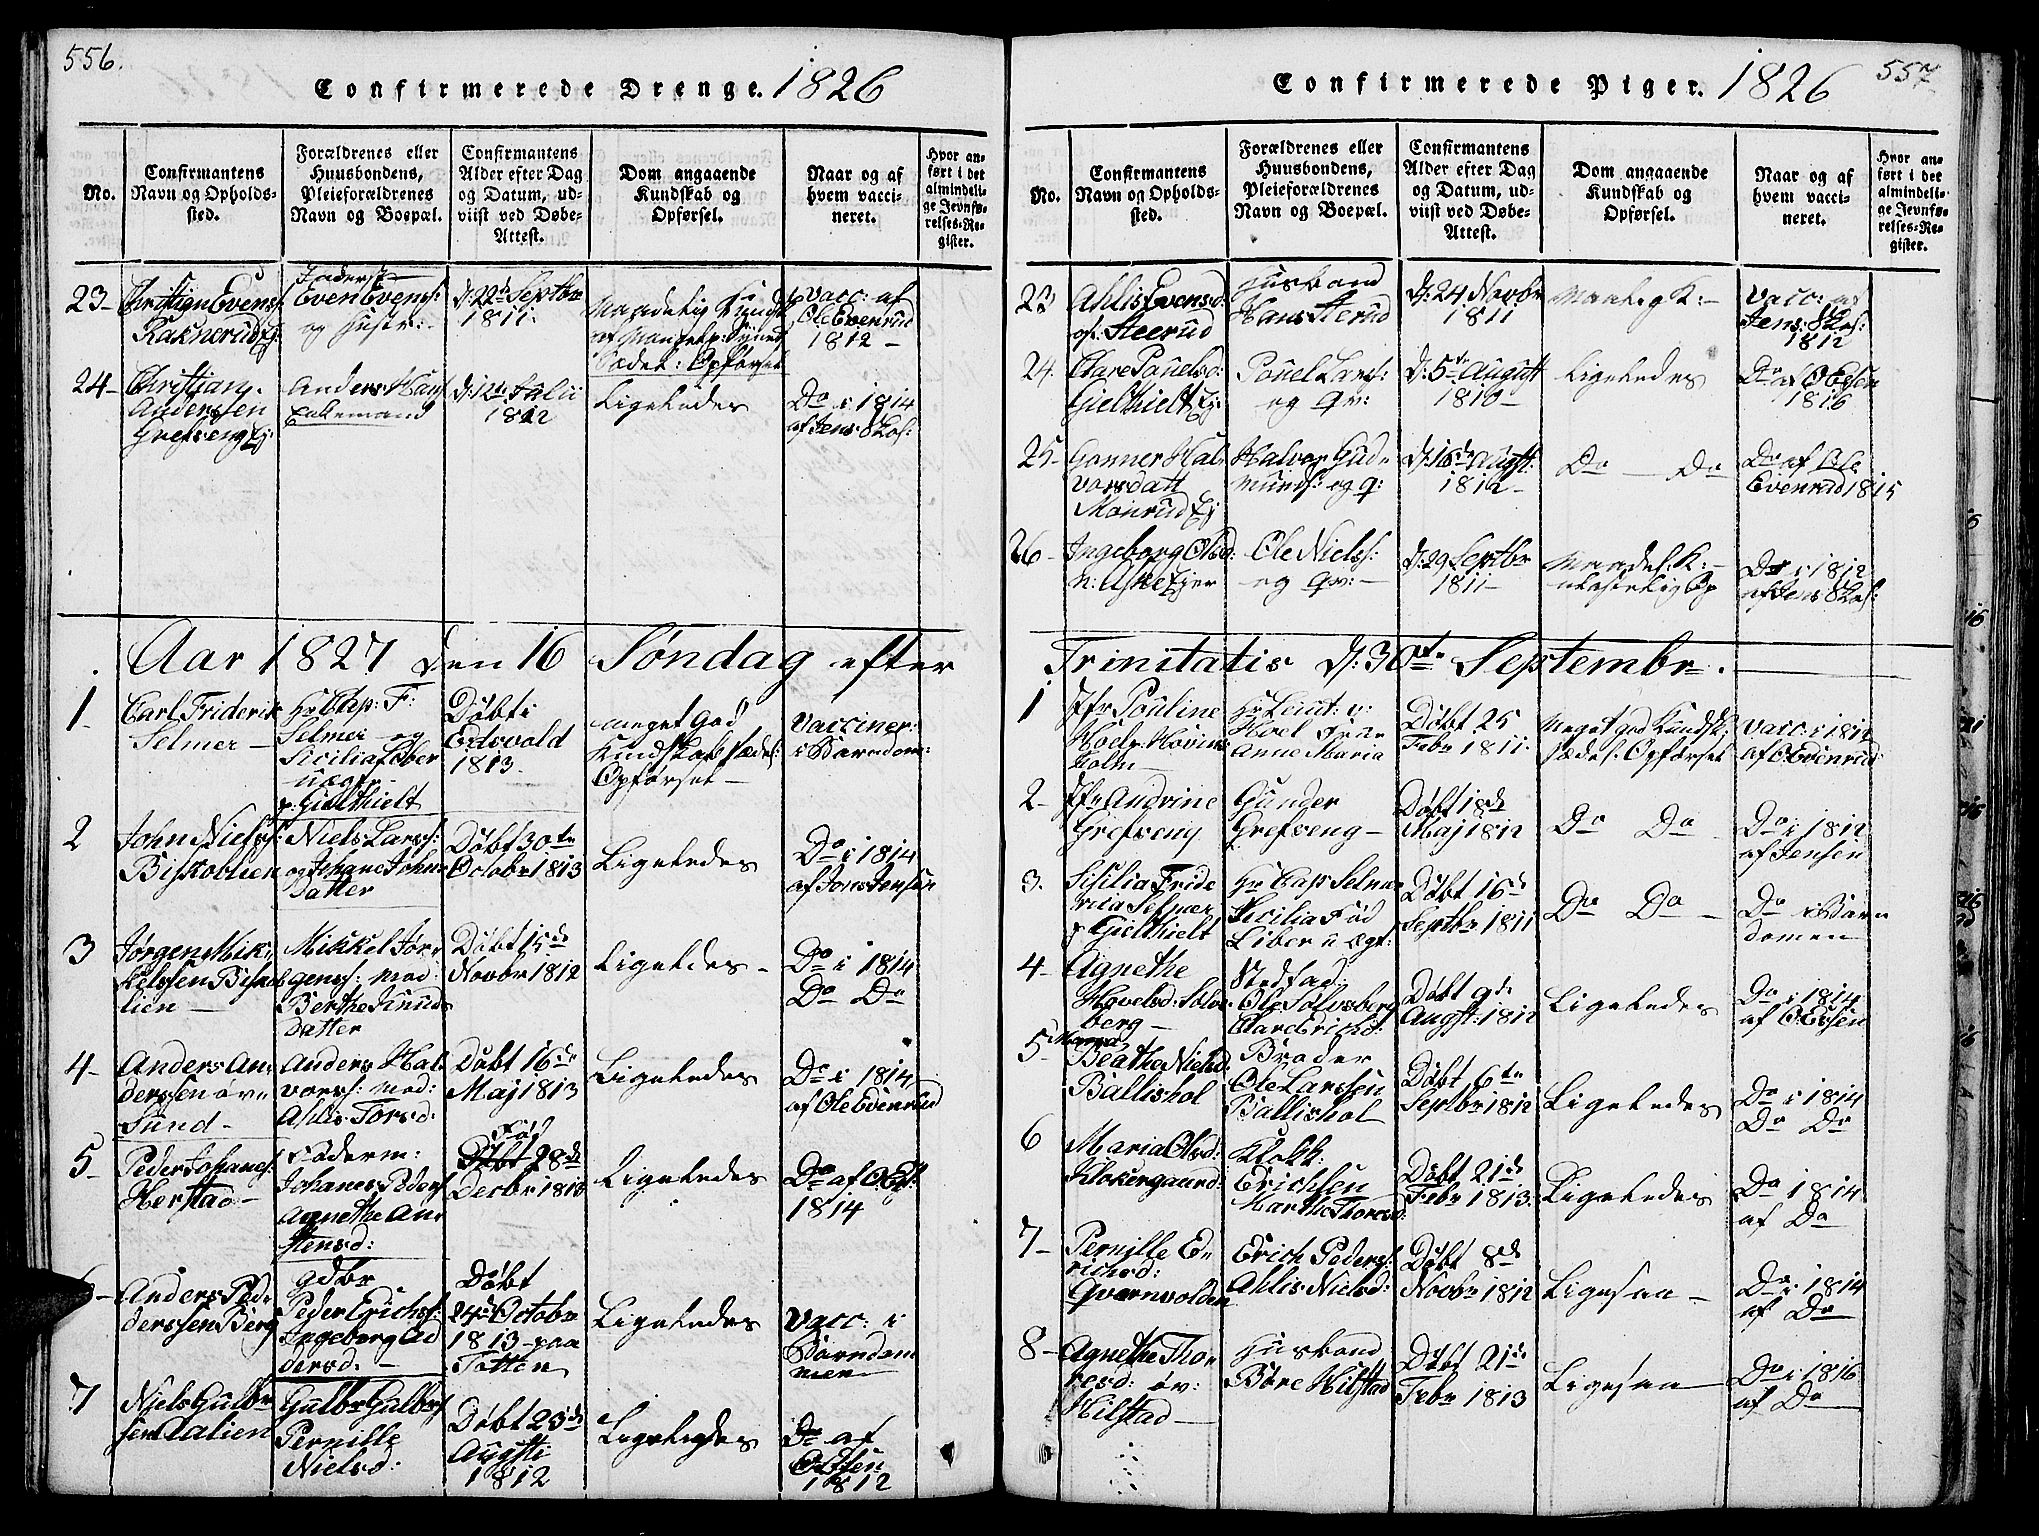 556.
Confirmerede Drenge. 1826
No.
Confirmantens
Navn og Opholds-
sted.
Forældrenes eller
Huusbondens,
Pleieforældrenes
Navn og Boepæl.
Confirmantens
Alder efter Dag
og Datum, ud-
viist ved Døbe-
Attest.
Dom angaaende
Kundskab og
Opførsel.
Naar og af
hvem vacci-
neret.
Hvor an-
ført i det
almindeli-
ge Jevnfø-
relses-Re-
gister.
23-
Christian Evens:
Raknerud Ej:
Even Evens:
og Hustr:
d: 22d Septbr
1811.
Vacc: af
Ole Evenrud
1812 -
24-
Christian
Anderssen
Grefseng Ej:
Anders Hans
Enkemand
d: 12te Julii
1812
Ligeledes
Do i 1814
af Jens Skol:
Aar 1827 den 16 Søndag efter
1
Carl Friderik
Selmer -
Hr Cap: F:
Selmer og
Døbt i
Eidsvold
1813.
meget god
Kundskab sædel:
Opførsel -
Vacciner:
i Barndom:
2
John Niels:
Biskoblien
Niels Larss:
og Johane Johns
Datter
Døbt 30te
Octobr 1813
Ligeledes
Do i 1814
af Jens Jensen
3
Jørgen Mik-
kelssen Bisko
lien -
Mikkel Jør-
genss: mod:
Berthe Knuds
Datter
Døbt 15de
Novbr 1812
Ligeledes -
Do i 1814
Do Do
4-
Anders An-
derssen øv-
Sund -
Anders Hal-
vorss: mod:
Ahlis Torsd:
Døbt 16de
Maj 1813
Ligeledes
Do i 1814
af Ole Evenrud
5-
Peder Johanes:
Herstad -
Johanes Peders
Agnethe An-
stensd:
Fød
28de
Decbr 1813
Ligeledes
Do af
1814
6-
Anders Pe-
derssen Berg
gdbr
Peder Erichss:
Ingeborg An
dersd: -
Døbt
24de Octobr
1813 paa
Totten
Ligeledes
Vacc: i
Barndom
men
7
Niels Gulbr
sen Dalien
Gulbr Gulbrs
Pernille
Nielsd:
Døbt 23de
Augsti
1812
Ligeledes
Do af
1812
Confirmerede Piger. 1826
557
No.
Confirmantens
Navn og Opholds-
sted.
Forældrenes eller
Huusbondens,
Pleieforældrenes
Navn og Boepæl.
Confirmantens
Alder efter Dag
og Datum, ud-
viist ved Døbe-
Attest.
Dom angaaende
Kundskab og
Opførsel.
Naar og af
hvem vacci-
neret.
Hvor an-
ført i det
almindelig-
ge Jevnfø-
relses-Re-
gister.
23
Ahlis Evensd:
af Steerud
Husbond
Hans Sterud
d: 24 Novbr
1811
Vacc: af
Jens Skol:
1812
24.
Clare Pouelsd:
Gielhielt Ej:
Pouel Lars:
og Qv:
d: 5te August
1810 -
Do af
1816
25-
Gonner Hal-
vorsdatt
Monrud Ej
Halvor Gud-
munds: og q:
d: 16de Augst:
1812 -
Do - Do
Do af Ole
Evenrud 1815
26-
Ingeborg Olsd:
n: Aske Ejer
Ole Niels:
og Qv: -
d: 29 Septbr
1811 -
Do i 1812
af Jens Skol:
Trinitatis d: 30te Septembr.
1
Jfr Pouline
holm -
Hr Leut: v:
Hoel
Anne Maria
Døbt 25
Febr 1811.
Meget god Kundsk:
sædel: Opførsel
Vacc: i 1812
af O Evenrud
2-
Jfr Andrine
Grefseng
Gunder
Grefseng -
Døbt 18de
Maj 1812
Do Do
Do i 1812
af Jensen
3.
Sisilia Fride
rica Selmer
p Gielhielt
Hr Cap Selmer
Secilia Fød
Liber u Ægt:
Døbt 16de
Septbr 1811
Do Do -
Do i Barn
domen
4-
Agnethe
berg -
Stedfad
Ole Solvsberg
Clare Erichs:
Døbt 9de
Augst: 1812
Ligeledes
Do i 1814
af
5-
Maria
Beathe Nielsd:
Ballishol
Broder
Ole Larssen
Ballishol
Døbt 6te
Septbr 1812
Ligeledes
Do i 1814
Do Do
6
Maria Olsd:
Klokergaard:
Klokk:
Erichsen
Marthe Thoresd:
Døbt 21de
Febr 1813.
Ligeledes
Do i 1814
af Do
7-
Pernille E-
richsd:
Qvernvolden
Erich Peders:
Ahlis Nielsd:
Døbt 8de
Novbr 1812
Ligesaa -
Do i 1814
af Do
8-
Agnethe Tho-
resd: øv:
Hilstad -
Husbond
Bore Hilstad
Døbt 21de
Febr 1813
Ligesaa -
Do i 1816
af Do